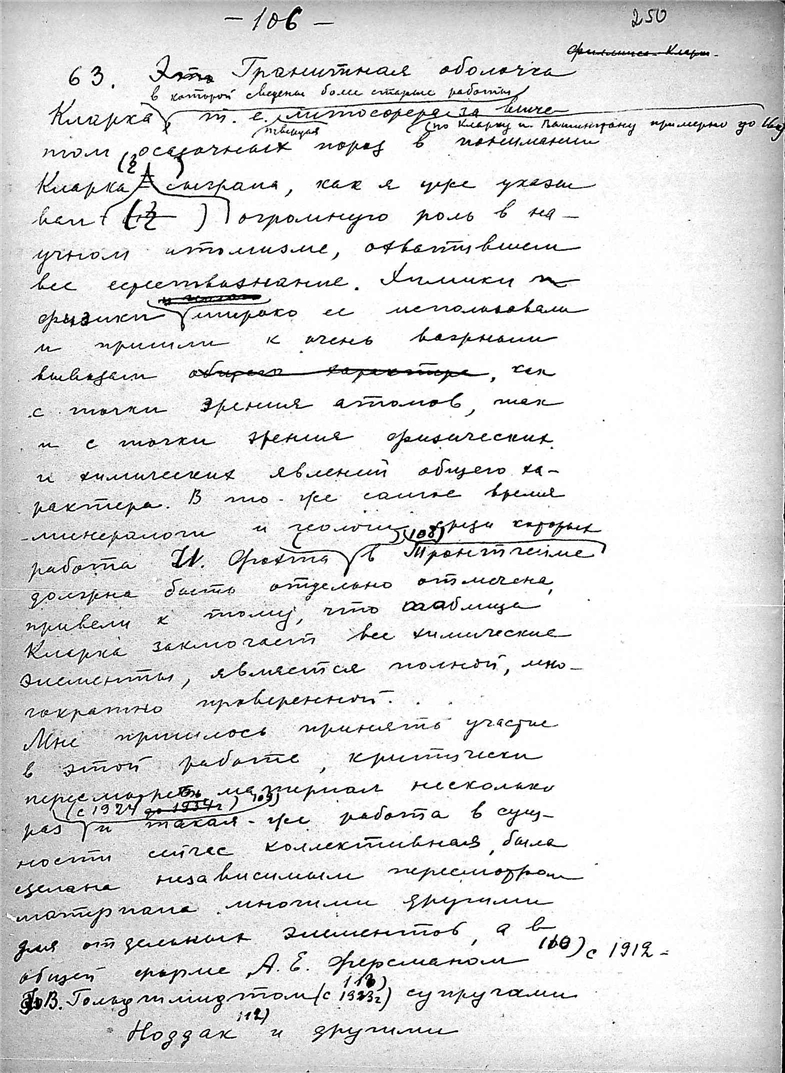 - 106 -
250
63. Это Гранитная оболочка
в которой сведены более старые работы
Кларка т. е. литосфера за
твердая (по Кларку и Вашингтону примерно до
том осадочных пород в понимании
Кларка сыграла, как я уже указы
вал ( § ) огромную роль в на-
учном атомизме, охватившем
все естествознание. Химики и
физики широко ее использовали
и пришли к очень важным
выводам общего характера, как
с точки зрения атомов, так
и с точки зрения физических
и химических явлений общего ха-
рактера. В то-же самое время
минералоги и геологи, среди которых
работа И. Фохта (108) в Тронтгейме
должна быть отдельно отмечена,
привели к тому, что таблица
Кларка заключает все химические
элементы, является полной, мно-
гократно проверенной.
Мне пришлось принять участие
в этой работе, критически
пересмотреть материал несколько
(с 1924 до 1934 г) 109)
раз и такая-же работа в сущ-
ности сейчас коллективная, была
сделана независимым пересмотром
материала многими другими
для отдельных элементов, а в
общей форме А. Е. Ферсманом 110) с 1912-
В. Гольдшмидтом (с 1923г) супругами
Ноддак 112) и другими